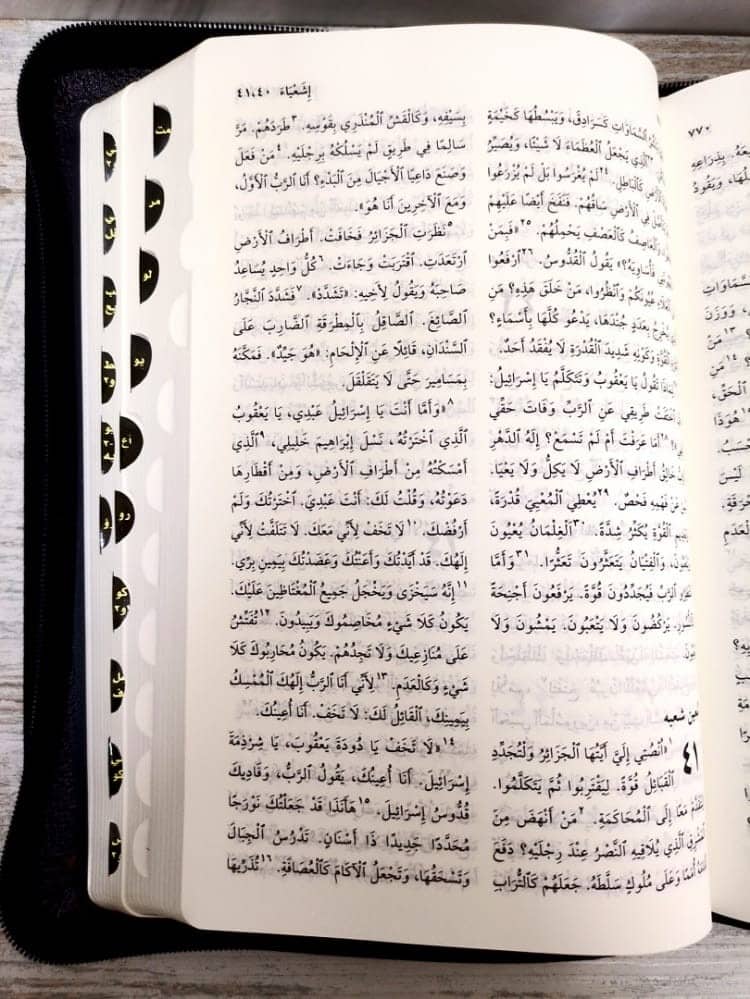 إِشَعْيَاءَ ٤١،٤٠
السَّمَاوَاتِ كَسَرَادِقَ، وَيَبْسُطُهَا كَخَيْمَةٍ
ٱلَّذِي يَجْعَلُ ٱلْعُظَمَاءَ لَا شَيْئًا، وَيُصَيِّرُ
كَٱلْبَاطِلِ. ٢٤لَمْ يُغْرَسُوا بَلْ لَمْ يُزْرَعُوا
فِي ٱلْأَرْضِ سَاقُهُمْ. فَنَفَخَ أَيْضًا عَلَيْهِمْ
كَٱلْعَصْفِ يَحْمِلُهُمْ. ٢٥«فَبِمَنْ
فَأُسَاوِيهِ؟» يَقُولُ ٱلْقُدُّوسُ. ٢٦ٱرْفَعُوا
عُيُونَكُمْ وَٱنْظُرُوا، مَنْ خَلَقَ هَذِهِ؟ مَنِ
بِعَدَدٍ جُنْدَهَا، يَدْعُو كُلَّهَا بِأَسْمَاءٍ؟
وَكَوْنِهِ شَدِيدَ ٱلْقُدْرَةِ لَا يُفْقَدُ أَحَدٌ.
تَقُولُ يَا يَعْقُوبُ وَتَتَكَلَّمُ يَا إِسْرَائِيلُ:
طَرِيقِي عَنِ ٱلرَّبِّ وَفَاتَ حَقِّي
عَرَفْتَ أَمْ لَمْ تَسْمَعْ؟ إِلَهُ ٱلدَّهْرِ
أَطْرَافِ ٱلْأَرْضِ لَا يَكِلُّ وَلَا يَعْيَا.
فَهْمِهِ فَحْصٌ. ٢٩يُعْطِي ٱلْمُعْيِيَ قُدْرَةً،
ٱلْقُوَّةِ يُكَثِّرُ شِدَّةً. ٣٠اَلْغِلْمَانُ يُعْيُونَ
وَٱلْفِتْيَانُ يَتَعَثَّرُونَ تَعَثُّرًا. ٣١وَأَمَّا
ٱلرَّبِّ فَيُجَدِّدُونَ قُوَّةً. يَرْفَعُونَ أَجْنِحَةً
يَرْكُضُونَ وَلَا يَتْعَبُونَ. يَمْشُونَ وَلَا
شعبه
٤١ «اُنْصُتِي إِلَيَّ أَيَّتُهَا ٱلْجَزَائِرُ وَلْتُجَدِّدِ
ٱلْقَبَائِلُ قُوَّةً. لِيَقْتَرِبُوا ثُمَّ يَتَكَلَّمُوا.
مَعًا إِلَى ٱلْمُحَاكَمَةِ. ٢مَنْ أَنْهَضَ مِنَ
ٱلَّذِي يُلَاقِيهِ ٱلنَّصْرُ عِنْدَ رِجْلَيْهِ؟ دَفَعَ
أُمَمًا وَعَلَى مُلُوكٍ سَلَّطَهُ. جَعَلَهُمْ كَٱلتُّرَابِ
بِسَيْفِهِ، وَكَٱلْقَشِّ ٱلْمُنْذَرِي بِقَوْسِهِ. ٣طَرَدَهُمْ. مَرَّ
سَالِمًا فِي طَرِيقٍ لَمْ يَسْلُكْهُ بِرِجْلَيْهِ. ٤مَنْ فَعَلَ
وَصَنَعَ دَاعِيًا ٱلْأَجْيَالَ مِنَ ٱلْبَدْءِ؟ أَنَا ٱلرَّبُّ ٱلْأَوَّلُ،
وَمَعَ ٱلْآخِرِينَ أَنَا هُوَ».
٥نَظَرَتِ ٱلْجَزَائِرُ فَخَافَتْ. أَطْرَافُ ٱلْأَرْضِ
ٱرْتَعَدَتِ. ٱقْتَرَبَتْ وَجَاءَتْ. ٦كُلُّ وَاحِدٍ يُسَاعِدُ
صَاحِبَهُ وَيَقُولُ لِأَخِيهِ: «تَشَدَّدْ». ٧فَشَدَّدَ ٱلنَّجَّارُ
ٱلصَّائِغَ. ٱلصَّاقِلُ بِٱلْمِطْرَقَةِ ٱلضَّارِبَ عَلَى
ٱلسَّنْدَانِ، قَائِلًا عَنِ ٱلْإِلْحَامِ: «هُوَ جَيِّدٌ». فَمَكَّنَهُ
بِمَسَامِيرَ حَتَّى لَا يَتَقَلْقَلَ.
٨«وَأَمَّا أَنْتَ يَا إِسْرَائِيلُ عَبْدِي، يَا يَعْقُوبُ
ٱلَّذِي ٱخْتَرْتُهُ، نَسْلَ إِبْرَاهِيمَ خَلِيلِي، ٩ٱلَّذِي
أَمْسَكْتُهُ مِنْ أَطْرَافِ ٱلْأَرْضِ، وَمِنْ أَقْطَارِهَا
دَعَوْتُهُ، وَقُلْتُ لَكَ: أَنْتَ عَبْدِيَ. ٱخْتَرْتُكَ وَلَمْ
أَرْفُضْكَ. ١٠لَا تَخَفْ لِأَنِّي مَعَكَ. لَا تَتَلَفَّتْ لِأَنِّي
إِلَهُكَ. قَدْ أَيَّدْتُكَ وَأَعَنْتُكَ وَعَضَدْتُكَ بِيَمِينِ بِرِّي.
١١إِنَّهُ سَيَخْزَى وَيَخْجَلُ جَمِيعُ ٱلْمُغْتَاظِينَ عَلَيْكَ.
يَكُونُ كَلَا شَيْءٍ مُخَاصِمُوكَ وَيَبِيدُونَ. ١٢تُفَتِّشُ
عَلَى مُنَازِعِيكَ وَلَا تَجِدُهُمْ. يَكُونُ مُحَارِبُوكَ كَلَا
شَيْءٍ وَكَٱلْعَدَمِ. ١٣لِأَنِّي أَنَا ٱلرَّبُّ إِلَهُكَ ٱلْمُمْسِكُ
بِيَمِينِكَ، ٱلْقَائِلُ لَكَ: لَا تَخَفْ. أَنَا أُعِينُكَ.
١٤«لَا تَخَفْ يَا دُودَةَ يَعْقُوبَ، يَا شِرْذِمَةَ
إِسْرَائِيلَ. أَنَا أُعِينُكَ، يَقُولُ ٱلرَّبُّ، وَفَادِيكَ
قُدُّوسُ إِسْرَائِيلَ. ١٥هَأَنَذَا قَدْ جَعَلْتُكَ نَوْرَجًا
مُحَدَّدًا جَدِيدًا ذَا أَسْنَانٍ. تَدْرُسُ ٱلْجِبَالَ
وَتَسْحَقُهَا، وَتَجْعَلُ ٱلْآكَامَ كَٱلْعُصَافَةِ. ١٦تُذَرِّيهَا
٧٧٠
بِذِرَاعِهِ
وَيَقُودُ
وَوَزَنَ
١٣مَنْ
ٱلْحَقِّ،
هُوَذَا
لَيْسَ
مت
مر
لو
يو
أع
رو
كو